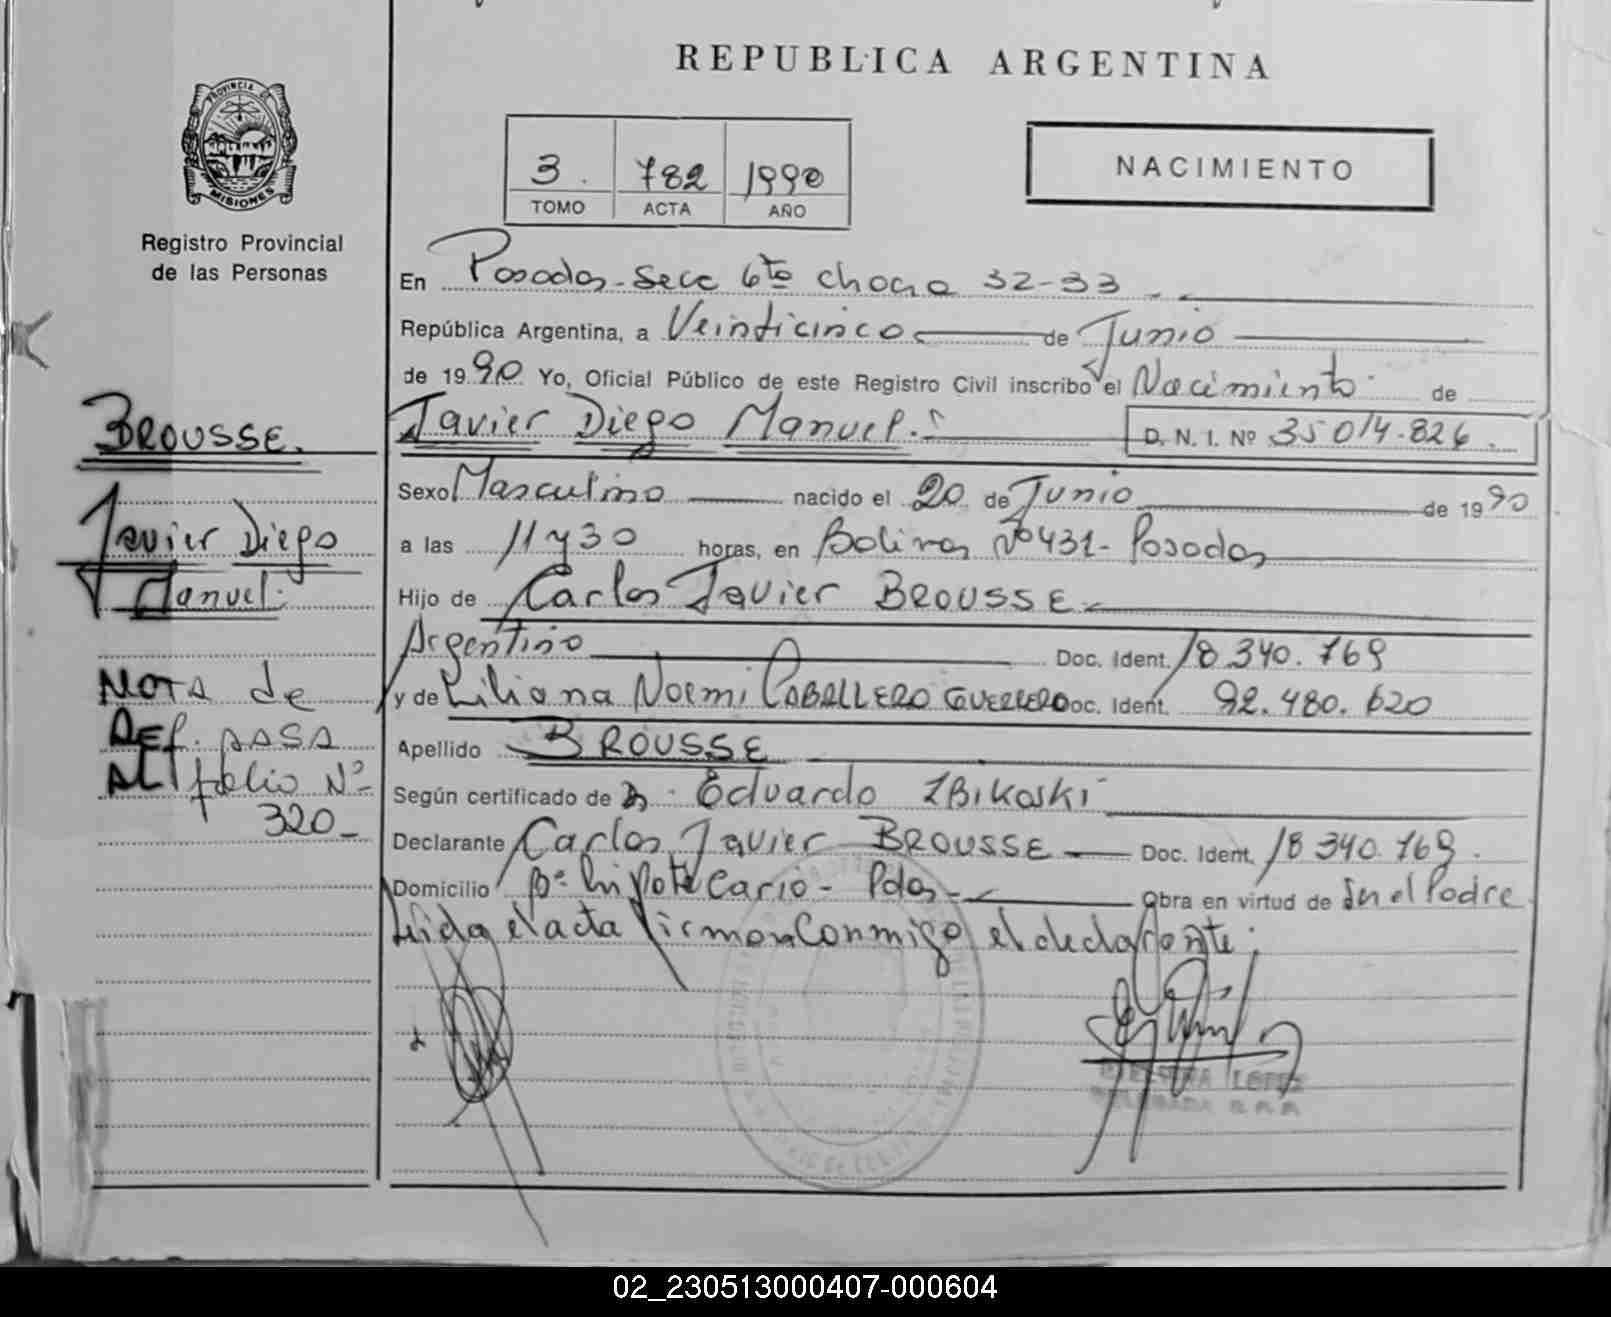 REPUBLICA ARGENTINA
PROVINCIA DE
MISIONES
Registro Provincial
de las Personas
3. 782 1990
TOMO ACTA AÑO
NACIMIENTO
En Posadas - Secc 6ta chacra 32-33
República Argentina, a Veinticinco de Junio
de 1990 Yo, Oficial Público de este Registro Civil inscribo el Nacimiento de
Javier Diego Manuel. D. N. I. Nº 35.014.826.
Sexo Masculino nacido el 20 de Junio de 1990
a las 11 y 30 horas, en Bolivar Nº 431 - Posadas
Hijo de Carlos Javier BROUSSE
Argentino Doc. Ident. 18.340.769
y de Liliana Noemi CABALLERO GUERRERO Doc. Ident. 92.480.620
Apellido BROUSSE
Según certificado de Eduardo ZBIKOSKI
Declarante Carlos Javier BROUSSE Doc. Ident. 18.340.769.
Domicilio Bº hipotecario - Pdas Obra en virtud de Ser el Padre
Leida el acta firman conmigo el declarante
BROUSSE.
Javier Diego
Manuel
NOTA de
DEF. PASA
AL folio Nº
320
LOPEZ
02_230513000407-000604